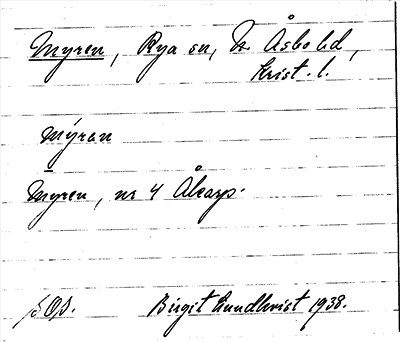 Myren, Rya sn, N. Åsbo hd,
Krist. l.
Mýran
Myren, nr 4 Åkarp.
Birgit Lundkvist 1938.